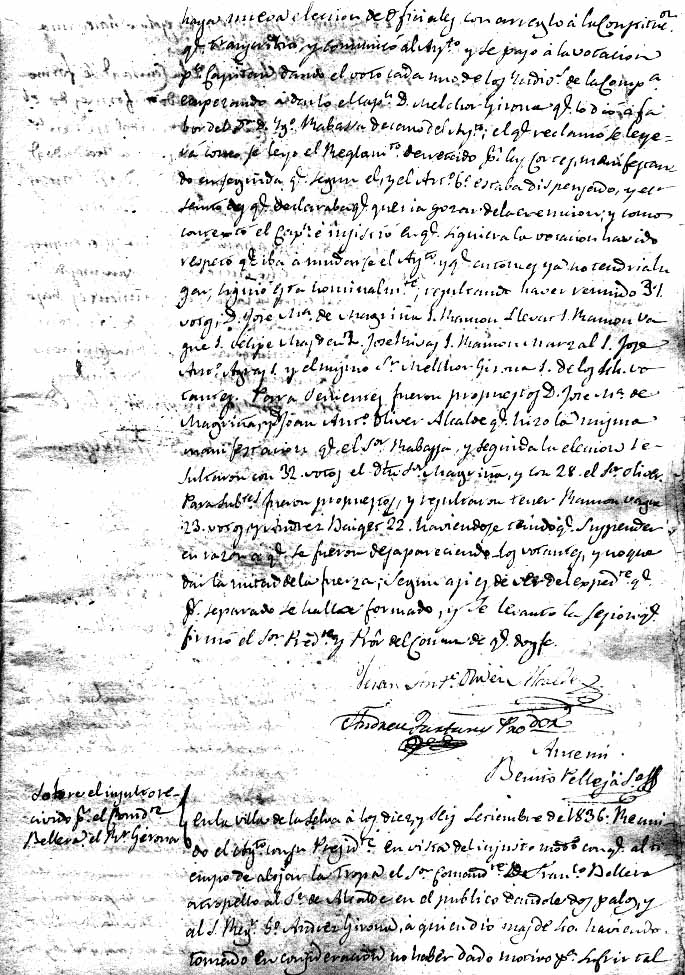 haya nueva eleccion de Oficiales con arreglo á la Constituc.ⁿ
q.ᵉ transcribió, y comunicó al Ay.ᵗᵒ y se pasó á la votacion
p.ᵃ Capitan dando el voto cada uno de los Yndiv.ˢ de la Comp.ᵃ
empezando á darlo el Cap.ⁿ D. Melchor Girona q.ᵉ lo dió á fa
bor del S.ʳ D. Mabassa decano del Ay.ᵗᵒ; el q.ᵉ reclamó se leye-
rá como se leyo el Reglam.ᵗᵒ decretado p.ʳ las Cortes, manifestan
do enseguida q.ᵉ segun el, y el Art.º 6º estaba dispensado, y
q.ᵉ declaraba q.ᵉ queria gozar de la exencion; y como
el Cap.ⁿ é insistió en q.ᵉ siguiera la votacion havido
respeto q.ᵉ iba á mudarse el Ay.ᵗᵒ y q.ᵉ entonces ya no tendria lu
gar, siguió esta nominalm.ᵗᵉ; resultando haver reunido 31
votos, D. Jose M.ᵃ de Magriña 1. Ramon Llevat 1. Ramon Va
que 1. Felipe 1. Jose 1. Ramon Marzal 1. Jose
Ant.º 1. y el mismo S.ʳ Melchor Girona 1. de los vo
tantes. Para Tenientes fueron propuestos D. Jose M.ᵃ de
Magriña, y D. Juan Ant.º Oliver Alcalde q.ᵉ hizo la misma
manifestacion q.ᵉ el S.ᵒʳ Mabassa, y seguida la eleccion re-
sultaron con 32 votos el S.ʳ Magriña, y con 28 el S.ʳ Oliver.
Para Subt.ᵉˢ fueron propuestos, y resultaron tener Ramon Vaque
23. votos, y Andrez Baiges 22. haviendose tenido q.ᵉ suspender
en razon á q.ᵉ se fueron desapareciendo los votantes, y no que
dar la mitad de la fuerza; segun asi es de ver del exped.ᵗᵉ q.ᵉ
p.ʳ separado se halla formado, y se levanto la sesion q.ᵉ
firmó el S.ᵒʳ Presid.ᵗᵉ y Pro.ʳ del Comun de q.ᵉ doy fe.
Juan Ant.º Oliver Alcalde
Andreu Pro.ᵈᵒʳ
Antemi
Benito Pelleja S.
Sobre el insulto re-
civido p.ʳ el Comd.ᵗᵉ
Bellera el R.ʳ Girona
En la villa de la Selva á los diez y seis Setiembre de 1836. Reuni
do el Ay.ᵗᵒ con su Presid.ᵗᵉ en vista del injusto modo con q.ᵉ al ti-
empo de alojar la Tropa el S.ᵒʳ Comand.ᵗᵉ D. Fran.ᶜᵒ Bellera
atropelló al S.ʳ de Alcalde en el publico dandole dos palos, y
al S. Reg.ʳ 5º Andres Girona, á quien dio mas de haviendo
tomado en consideracion no haber dado motivo p.ᵃ sufrir tal